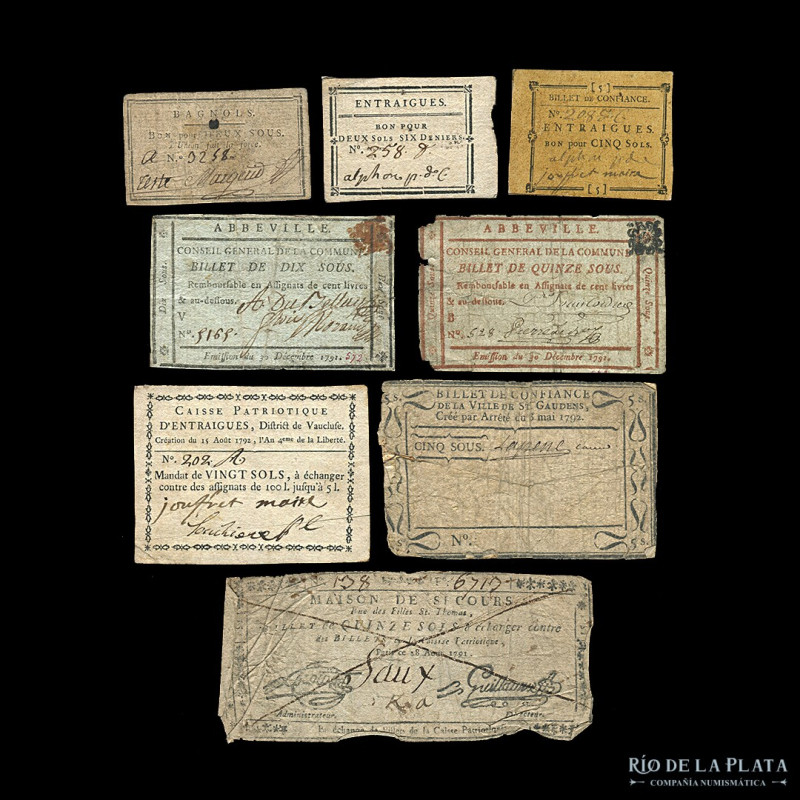 BAGNOLS.
BON pour DEUX SOUS.
L'union fait la force.
A N.o 3258
ENTRAIGUES.
BON POUR
DEUX SOLS SIX DENIERS.
N.o 258
alphon p. de C
[5]
BILLET DE CONFIANCE.
N.o
ENTRAIGUES.
BON pour CINQ SOLS.
alphon p. de
jouffret maire
[5]
ABBEVILLE.
CONSEIL GENERAL DE LA COMMUNE
BILLET DE DIX SOUS.
Remboursable en Assignats de cent livres
& au-dessous.
V
No. 5165
Emission du 30 Décembre 1791.
Dix Sous.
ABBEVILLE.
CONSEIL GENERAL DE LA COMMUNE
BILLET DE QUINZE SOUS.
Remboursable en Assignats de cent livres
& au-dessous.
B
No. 528
Emission du 30 Décembre 1791.
Quinze Sous.
CAISSE PATRIOTIQUE
D'ENTRAIGUES, District de Vaucluse.
Création du 15 Août 1792, l'An 4eme de la Liberté.
No. 202 A
Mandat de VINGT SOLS, à échanger
contre des assignats de 100 l. jusqu'à 5 l.
jouffret maire
5s. BILLET DE CONFIANCE 5s.
DE LA VILLE DE ST GAUDENS,
Créé par Arrêté du 3 mai 1792.
CINQ SOUS.
5s. No. 5s.
138 6717
MAISON DE SECOURS
Rue des Filles St. Thomas,
BILLET DE QUINZE SOLS à échanger contre
des BILLETS de la Caisse Patriotique,
Paris ce 28 Août 1791.
Saux
Guillaume
Administrateur.
En échange de billets de la Caisse Patriotique
RÍO DE LA PLATA
COMPAÑÍA NUMISMÁTICA